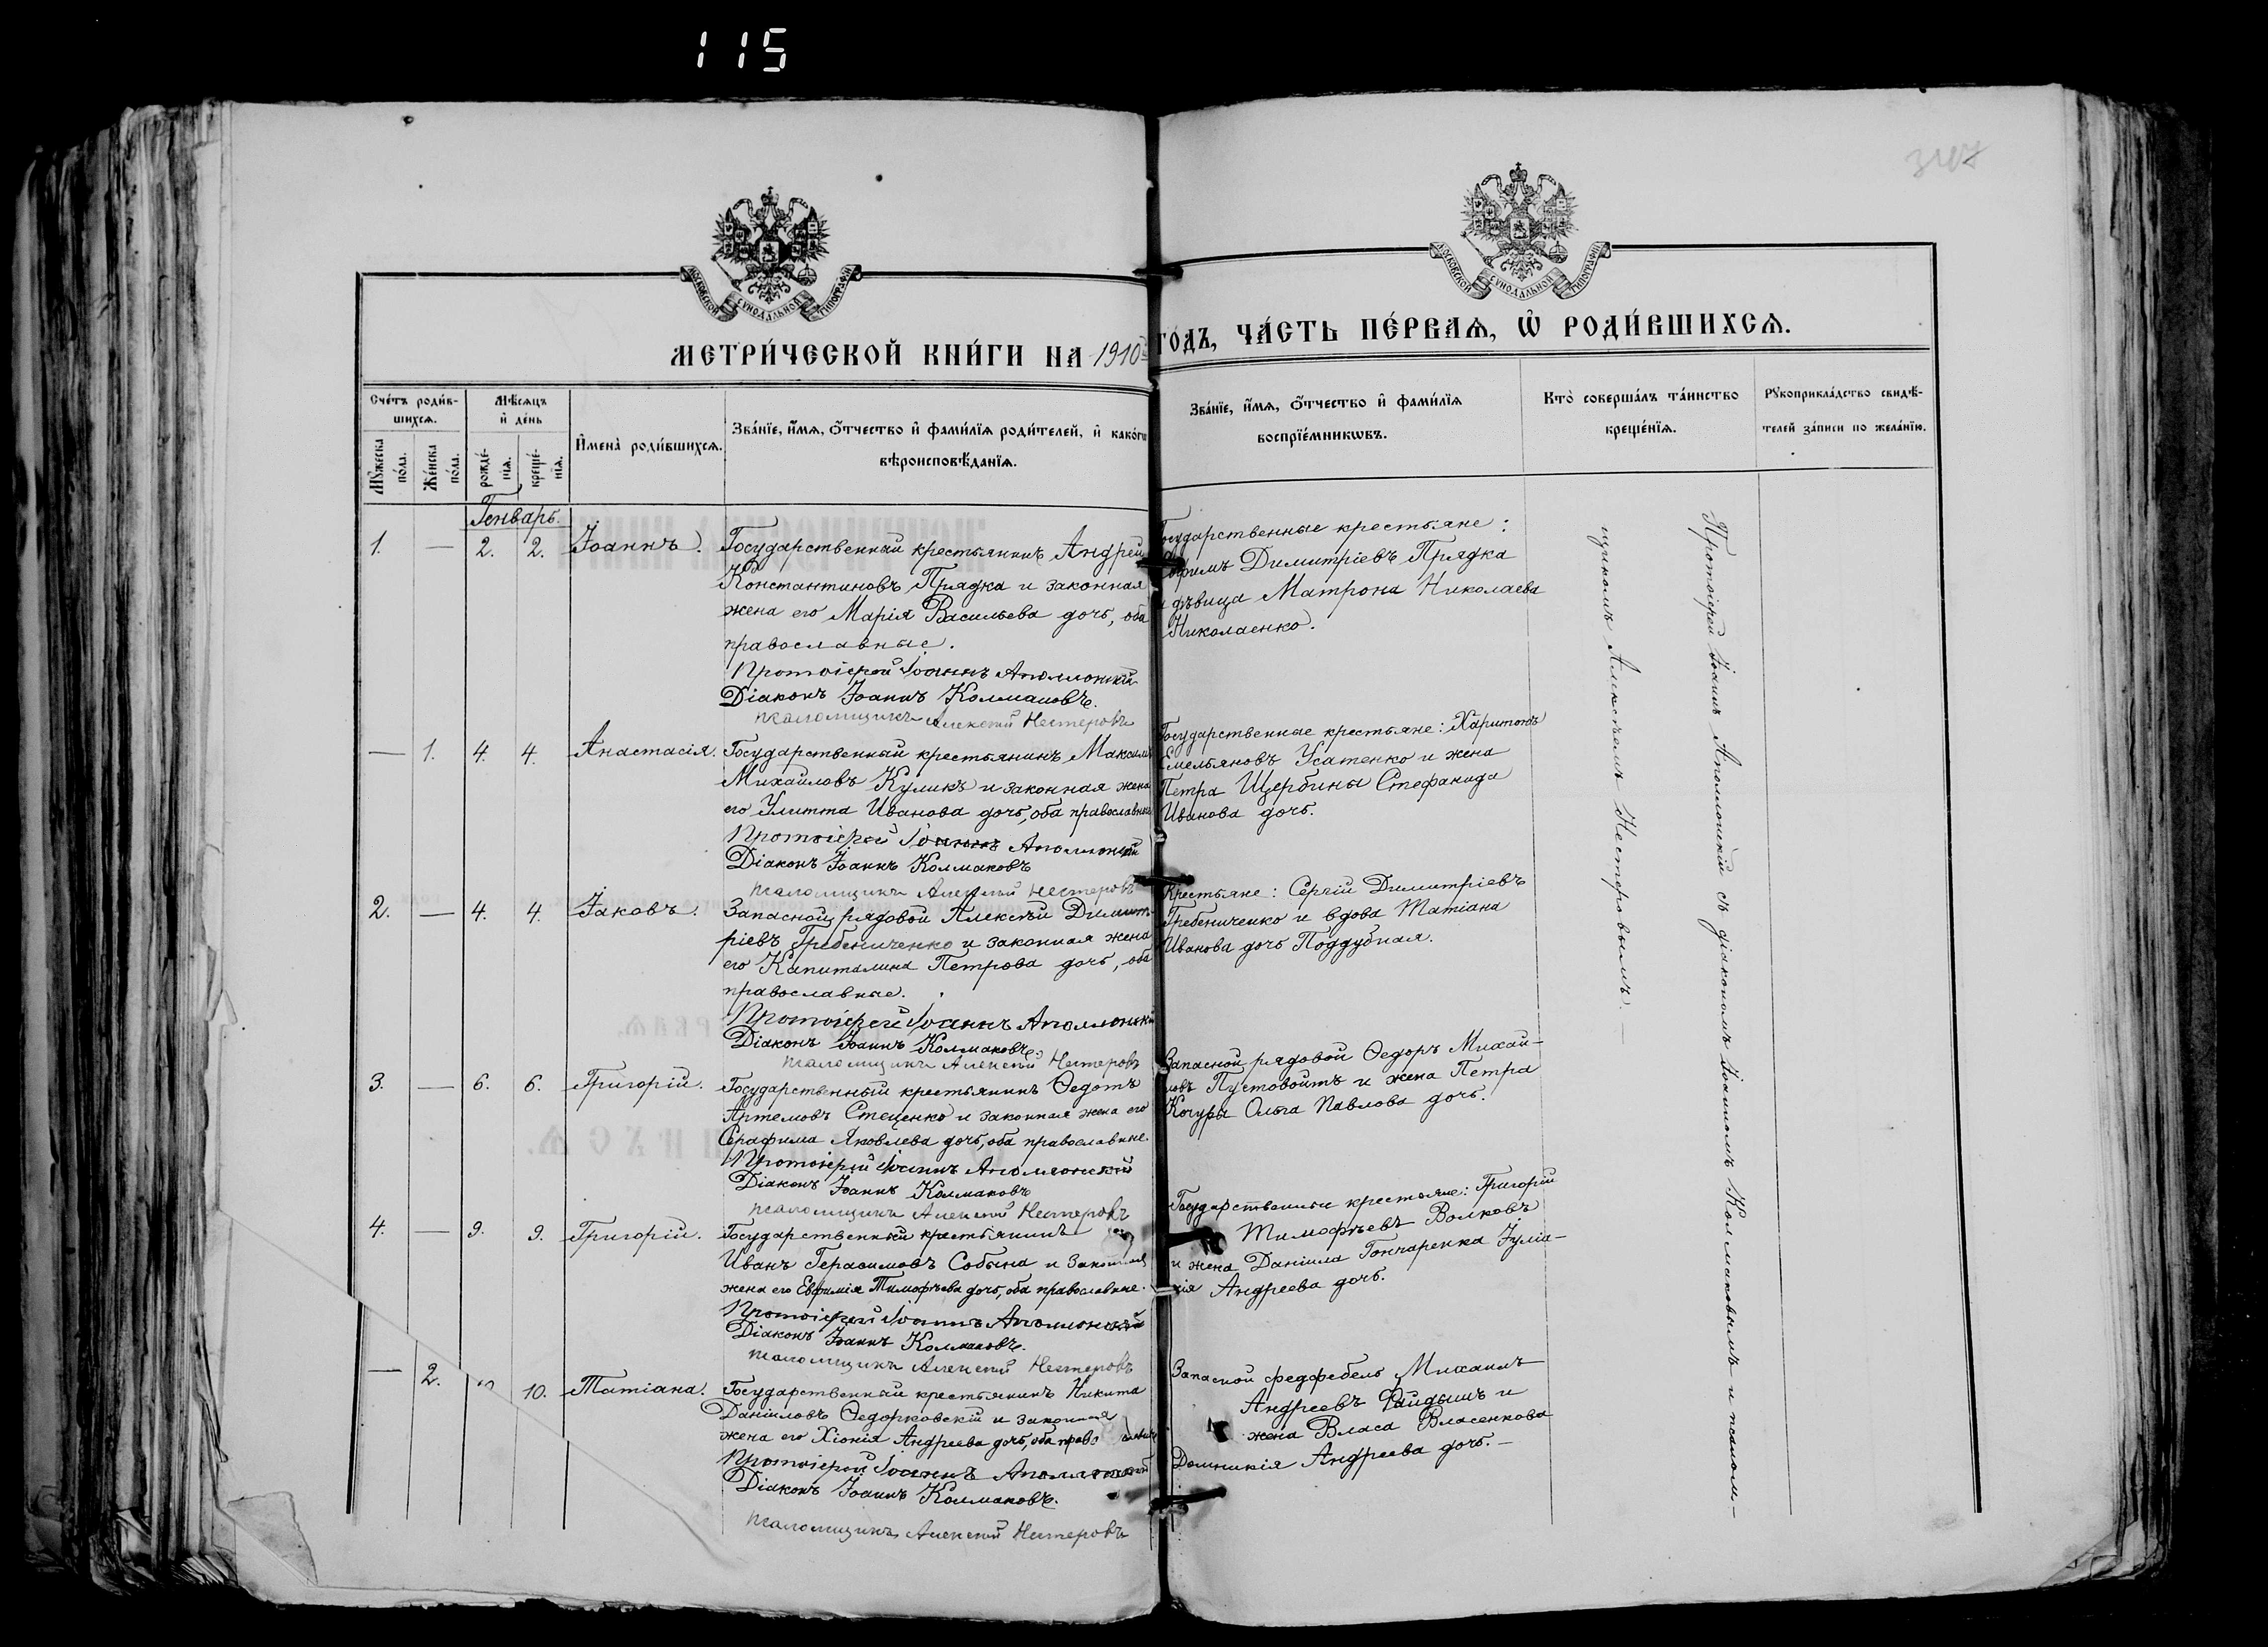 115
3447
МОСКОВСКОЙ СѴНОДАЛЬНОЙ ТИПОГРАФІИ
МОСКОВСКОЙ СѴНОДАЛЬНОЙ ТИПОГРАФІИ
МЕТРИ́ЧЕСКОЙ КНИ́ГИ НА 1910й ГОДЪ, ЧА́СТЬ ПЕ́РВАѦ, Ѡ҆ РОДИ́ВШИХСѦ.
Сче́тъ роди́в-
шихсѧ.
Мꙋжеска по́ла.
Же́нска по́ла.
Мѣ́сѧцъ
и҆ де́нь
рожде́-
нїѧ.
креще́-
нїѧ.
И҆мена̀ роди́вшихсѧ.
Зва́нїе, и҆́мѧ, ѻ҆́тчество и҆ фами́лїѧ роди́телей, и҆ како́гѡ
вѣроисповѣ́данїѧ.
Зва́нїе, и҆́мѧ, ѻ҆́тчество и҆ фами́лїѧ
воспрїе́мникѡвъ.
Кто̀ соверша́лъ та́инство
креще́нїѧ.
Рꙋкоприкла́дство свидѣ́-
телей за́писи по жела́нїю.
Генварь.
1. — 2. 2. Іоаннъ. Государственный крестьянинъ Андрей
Константиновъ Прядка и законная
жена его Марія Васильева дочь, оба
православные.
Протоіерей Іоаннъ Аполлонскій
Діаконъ Іоаннъ Колмаковъ.
Псаломщикъ Алексѣй Нестеровъ
Государственные крестьяне:
Димитріевъ Прядка
и дѣвица Матрона Николаева
Николаенко.
— 1. 4. 4. Анастасія. Государственный крестьянинъ Максимъ
Михайловъ Куликъ и законная жена
его Улитта Иванова дочь, оба православные
Протоіерей Іоаннъ Аполлонскій
Діаконъ Іоаннъ Колмаковъ
Псаломщикъ Алексѣй Нестеровъ
Государственные крестьяне: Харитонъ
Емельяновъ Усатенко и жена
Петра Щербины Стефанида
Иванова дочь.
2. — 4. 4. Іаковъ. Запасной рядовой Алексѣй Димит-
ріевъ Гребениченко и законная жена
его Капиталина Петрова дочь, оба
православные.
Протоіерей Іоаннъ Аполлонскій
Діаконъ Іоаннъ Колмаковъ.
Псаломщикъ Алексѣй Нестеровъ
Крестьяне: Сергій Димитріевъ
Гребениченко и вдова Татіана
Иванова дочь Поддубная.
3. — 6. 6. Григорій. Государственный крестьянинъ Ѳедотъ
Артемовъ Стеценко и законная жена его
Серафима Яковлева дочь, оба православные.
Протоіерей Іоаннъ Аполлонскій
Діаконъ Іоаннъ Колмаковъ
Псаломщикъ Алексѣй Нестеровъ
Запасной рядовой Ѳедоръ Михай-
ловъ Пустовойтъ и жена Петра
Кочуры Ольга Павлова дочь.
4. — 9. 9. Григорій. Государственный крестьянинъ
Иванъ Герасимовъ Собына и законная
жена его Евфимія Тимофѣева дочь, оба православные.
Протоіерей Іоаннъ Аполлонскій
Діаконъ Іоаннъ Колмаковъ.
Псаломщикъ Алексѣй Нестеровъ
Государственные крестьяне: Григорій
Тимофѣевъ Волковъ
и жена Даніила Гончаренка Іулиа-
нія Андреева дочь.
— 2. 10. Татіана. Государственный крестьянинъ Никита
Даніиловъ Ѳедорковскій и законная
жена его Хіонія Андреева дочь, оба православные
Протоіерей Іоаннъ Аполлонскій
Діаконъ Іоаннъ Колмаковъ.
Псаломщикъ Алексѣй Нестеровъ
Запасной федфебель Михаилъ
Андреевъ Файдышъ и
жена Власа Власенкова
Домникія Андреева дочь. —
Протоіерей Іоаннъ Аполлонскій съ діакономъ Іоанномъ Колмаковымъ и псалом-
щикомъ Алексѣемъ Нестеровымъ. —